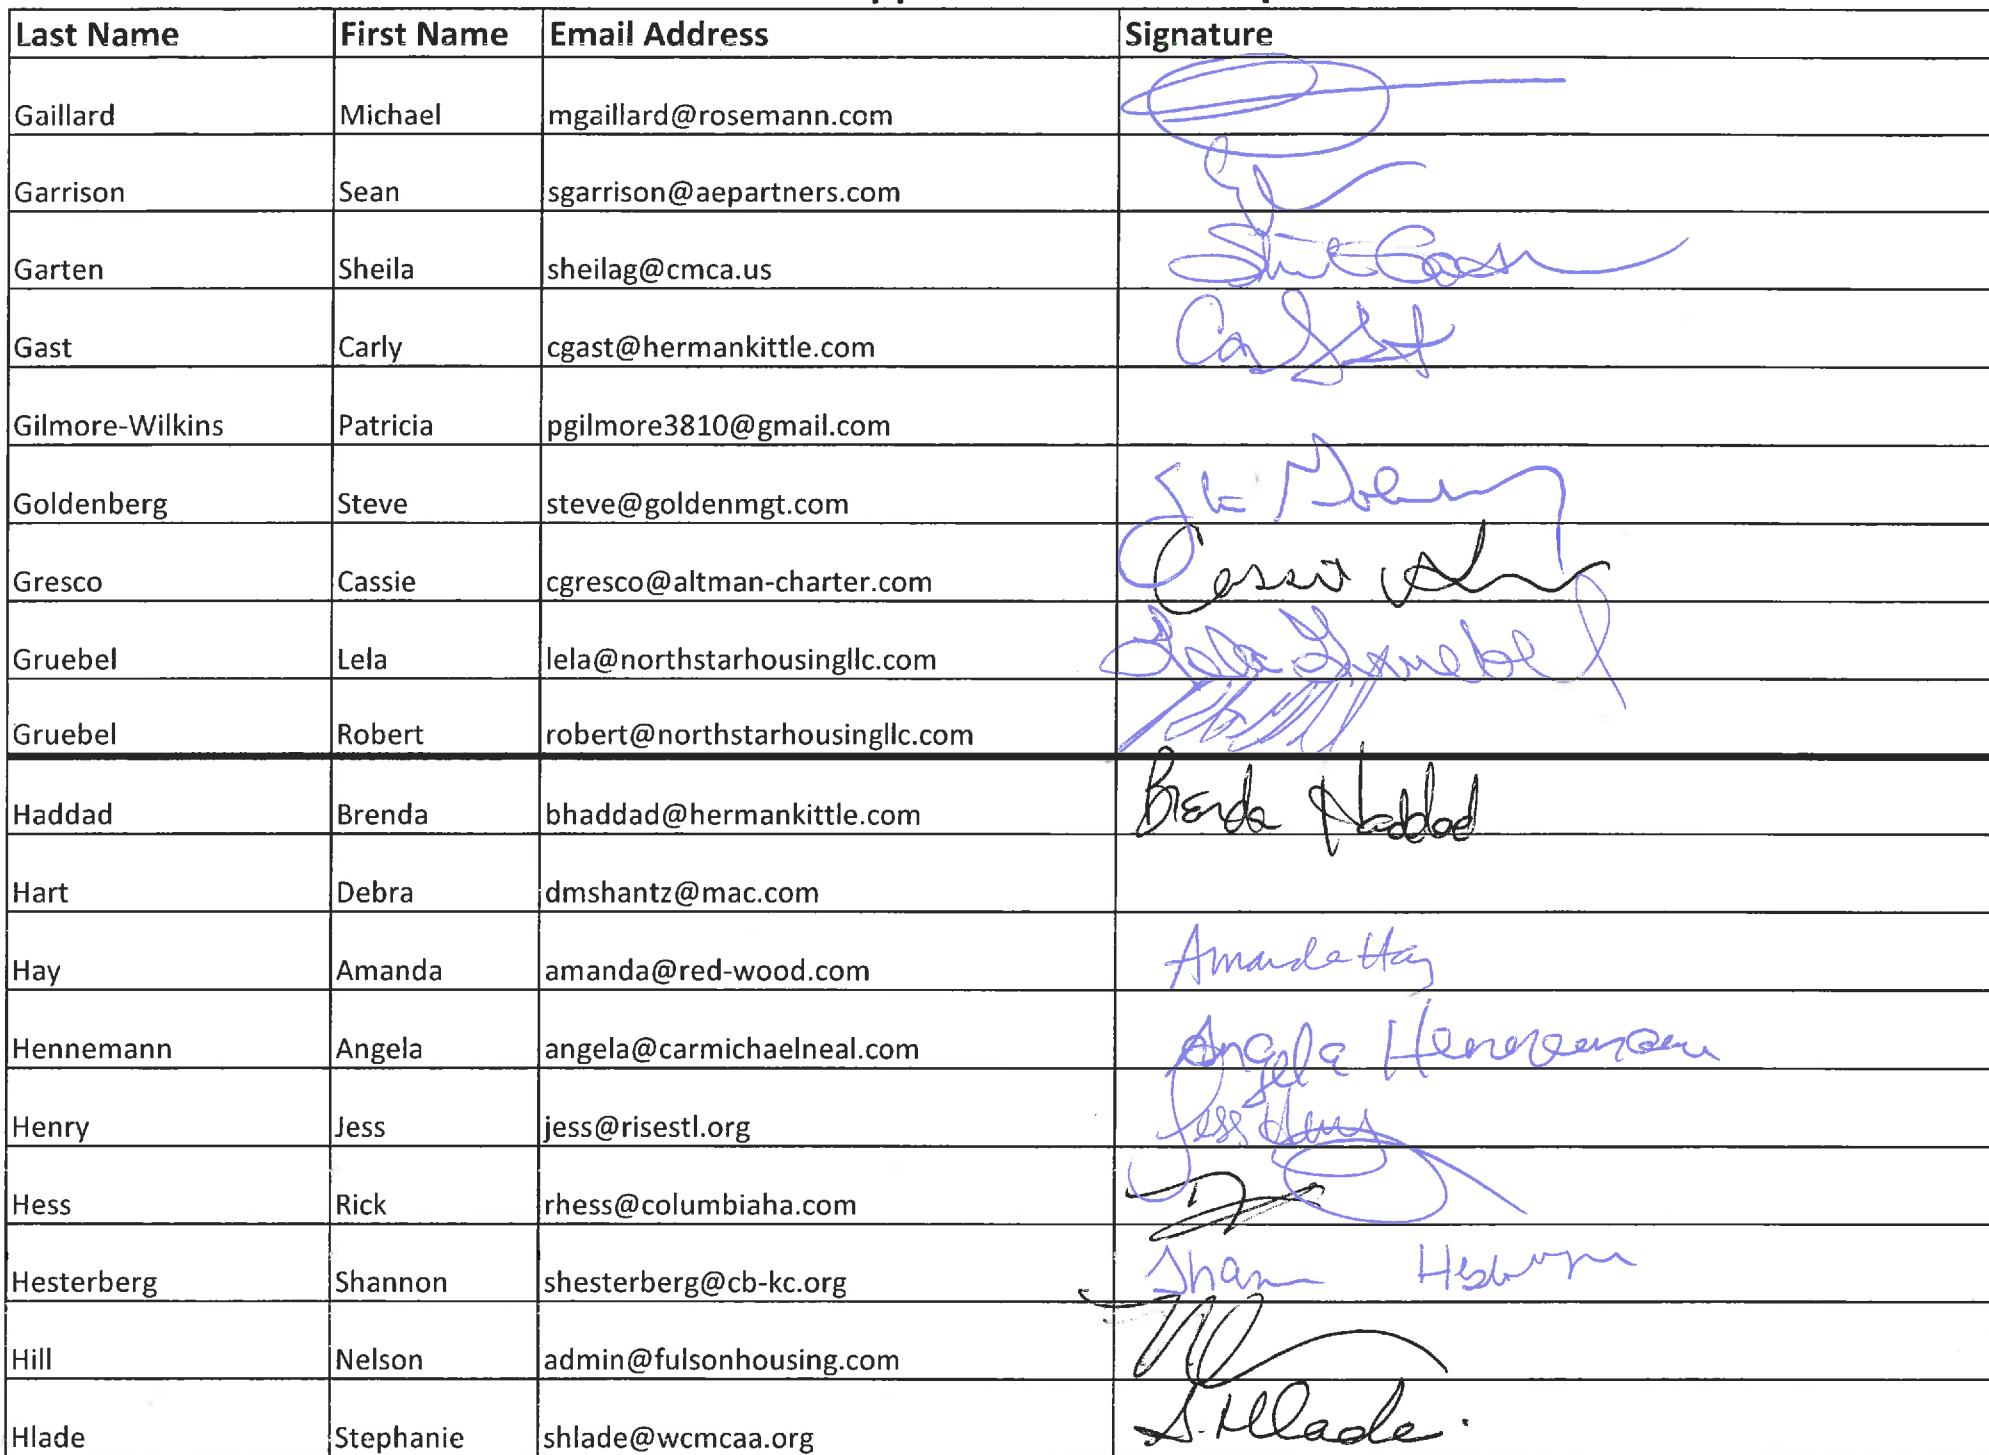 Last Name First Name Email Address Signature
Gaillard Michael mgaillard@rosemann.com
Garrison Sean sgarrison@aepartners.com
Garten Sheila sheilag@cmca.us
Gast Carly cgast@hermankittle.com
Gilmore-Wilkins Patricia pgilmore3810@gmail.com
Goldenberg Steve steve@goldenmgt.com
Gresco Cassie cgresco@altman-charter.com
Gruebel Lela lela@northstarhousingllc.com Lela Gruebel
Gruebel Robert robert@northstarhousingllc.com
Haddad Brenda bhaddad@hermankittle.com Brenda Haddad
Hart Debra dmshantz@mac.com
Hay Amanda amanda@red-wood.com Amanda Hay
Hennemann Angela angela@carmichaelneal.com Angela Hennemann
Henry Jess jess@risestl.org Jess Henry
Hess Rick rhess@columbiaha.com
Hesterberg Shannon shesterberg@cb-kc.org
Hill Nelson admin@fulsonhousing.com
Hlade Stephanie shlade@wcmcaa.org S. Hlade